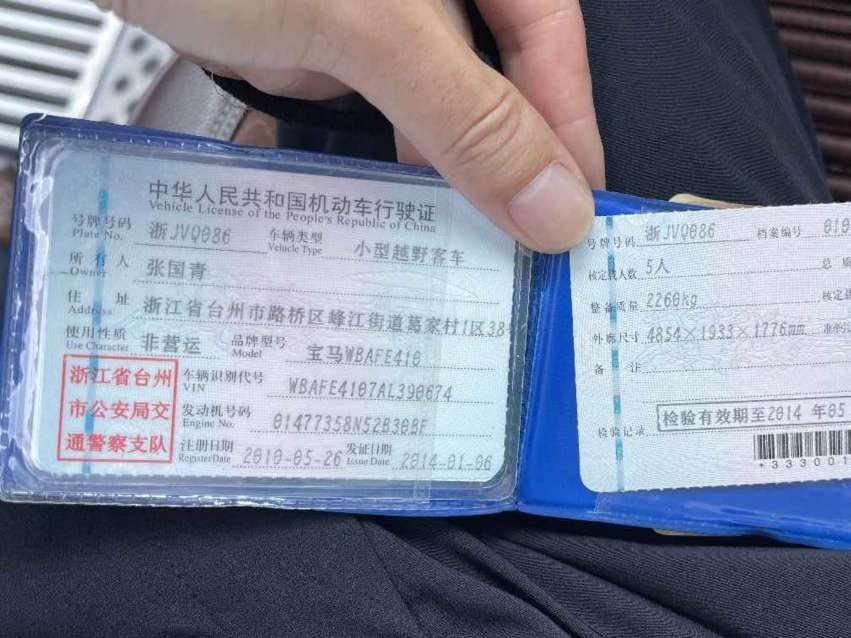 中华人民共和国机动车行驶证
Vehicle License of the People's Republic of China
号牌号码 浙JVQ086 车辆类型 小型越野客车
Plate No. Vehicle Type
所有人 张国青
Owner
住址 浙江省台州市路桥区峰江街道葛家村1区38
Address
使用性质 非营运 品牌型号 宝马WBAFE410
Use Character Model
浙江省台州
市公安局交
通警察支队
车辆识别代号 WBAFE4107AL390674
VIN
发动机号码 01477358N52B30BF
Engine No.
注册日期 2010-05-26 发证日期 2014-01-06
Register Date Issue Date
号牌号码 浙JVQ086 档案编号 010
核定载人数 5人 总质
整备质量 2260kg 核定载
外廓尺寸 4854×1933×1776mm 准牵引
备注
检验记录 检验有效期至2014年05
+333001